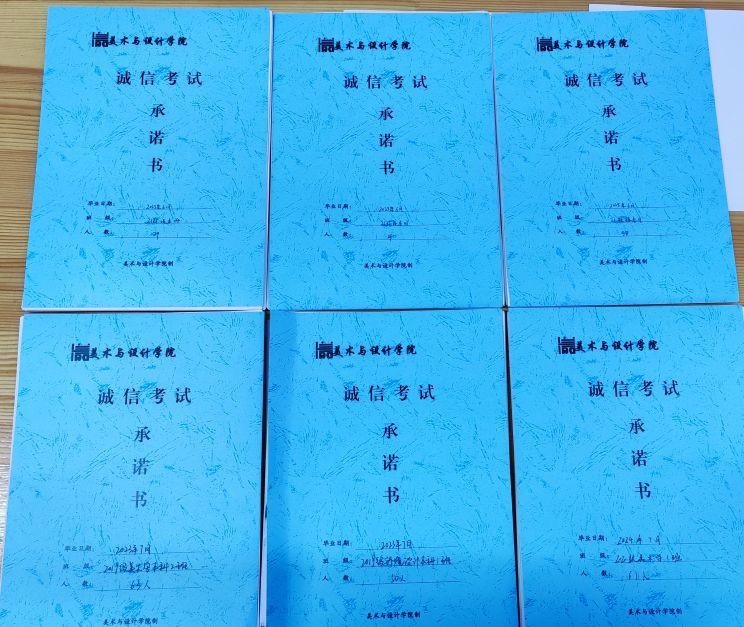 美术与设计学院
诚信考试
承
诺
书
毕业日期：
班 级：
人 数：
美术与设计学院制
美术与设计学院
诚信考试
承
诺
书
毕业日期：
班 级：
人 数：
美术与设计学院制
美术与设计学院
诚信考试
承
诺
书
毕业日期：
班 级：
人 数：
美术与设计学院制
美术与设计学院
诚信考试
承
诺
书
毕业日期： 2023年7月
班 级： 2019级美术学本科2班
人 数： 63人
美术与设计学院制
美术与设计学院
诚信考试
承
诺
书
毕业日期： 2023年7月
班 级： 2019级环境设计本科1班
人 数： 50人
美术与设计学院制
美术与设计学院
诚信考试
承
诺
书
毕业日期： 2024年7月
班 级：
人 数：
美术与设计学院制